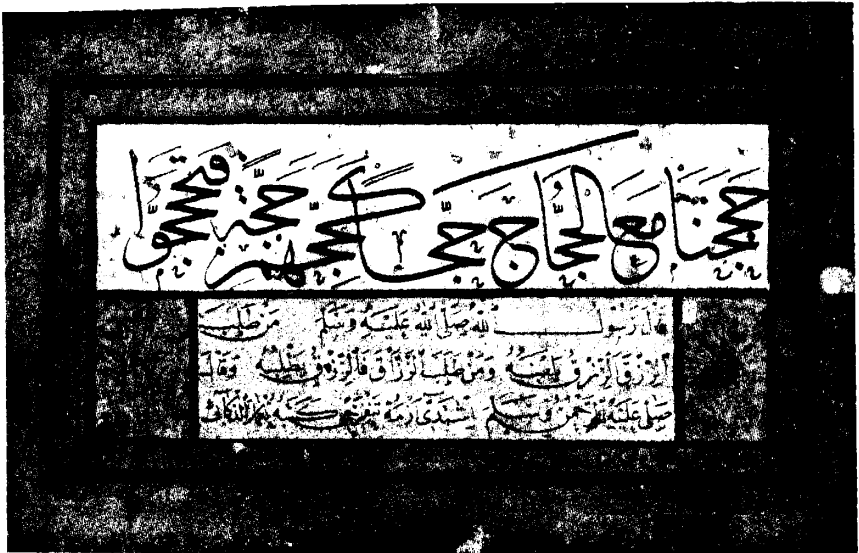 حججنا مع الحجاج حجا كحجهم حجة فتحججوا
قال رسول الله صلى الله عليه وسلم من طلب
الرزق ومن طلب الرزاق فالرزق يطلبه وقال
صلى عليه الرحمن وسلم اشتدى ازمة تنفرجى كتبه